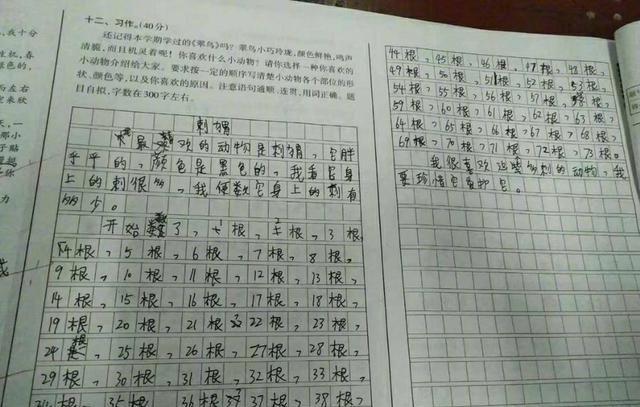 十二、习作。(40分)
还记得本学期学过的《翠鸟》吗?翠鸟小巧玲珑,颜色鲜艳,鸣声
清脆,而且机灵着呢!你喜欢什么小动物?请你选择一种你喜欢的
小动物介绍给大家。要求按一定的顺序写清楚小动物各个部位的形
状、颜色等,以及你喜欢的原因。注意语句通顺、连贯,用词正确。题
目自拟,字数在300字左右。
刺猬
我最喜欢的动物是刺猬,它胖
乎乎的,颜色是黑色的,我看它身
上的刺很多,我便数它身上的刺有
多少。
开始数了,1根,2根,3根,
4根,5根,6根,7根,8根,
9根,10根,11根,12根,13根,
14根,15根,16根,17根,18根,
19根,20根,21根,22根,23根,
24根,25根,26根,27根,28根,
29根,30根,31根,32根,33根,
34根,35根,36根,37根,38根,
44根,45根,46根,47根,48根,
49根,50根,51根,52根,53根,
54根,55根,56根,57根,58根,
59根,60根,61根,62根,63根,
64根,65根,66根,67根,68根,
69根,70根,71根,72根,73根。
我很喜欢这些多刺的动物,我
要珍惜它爱护它。